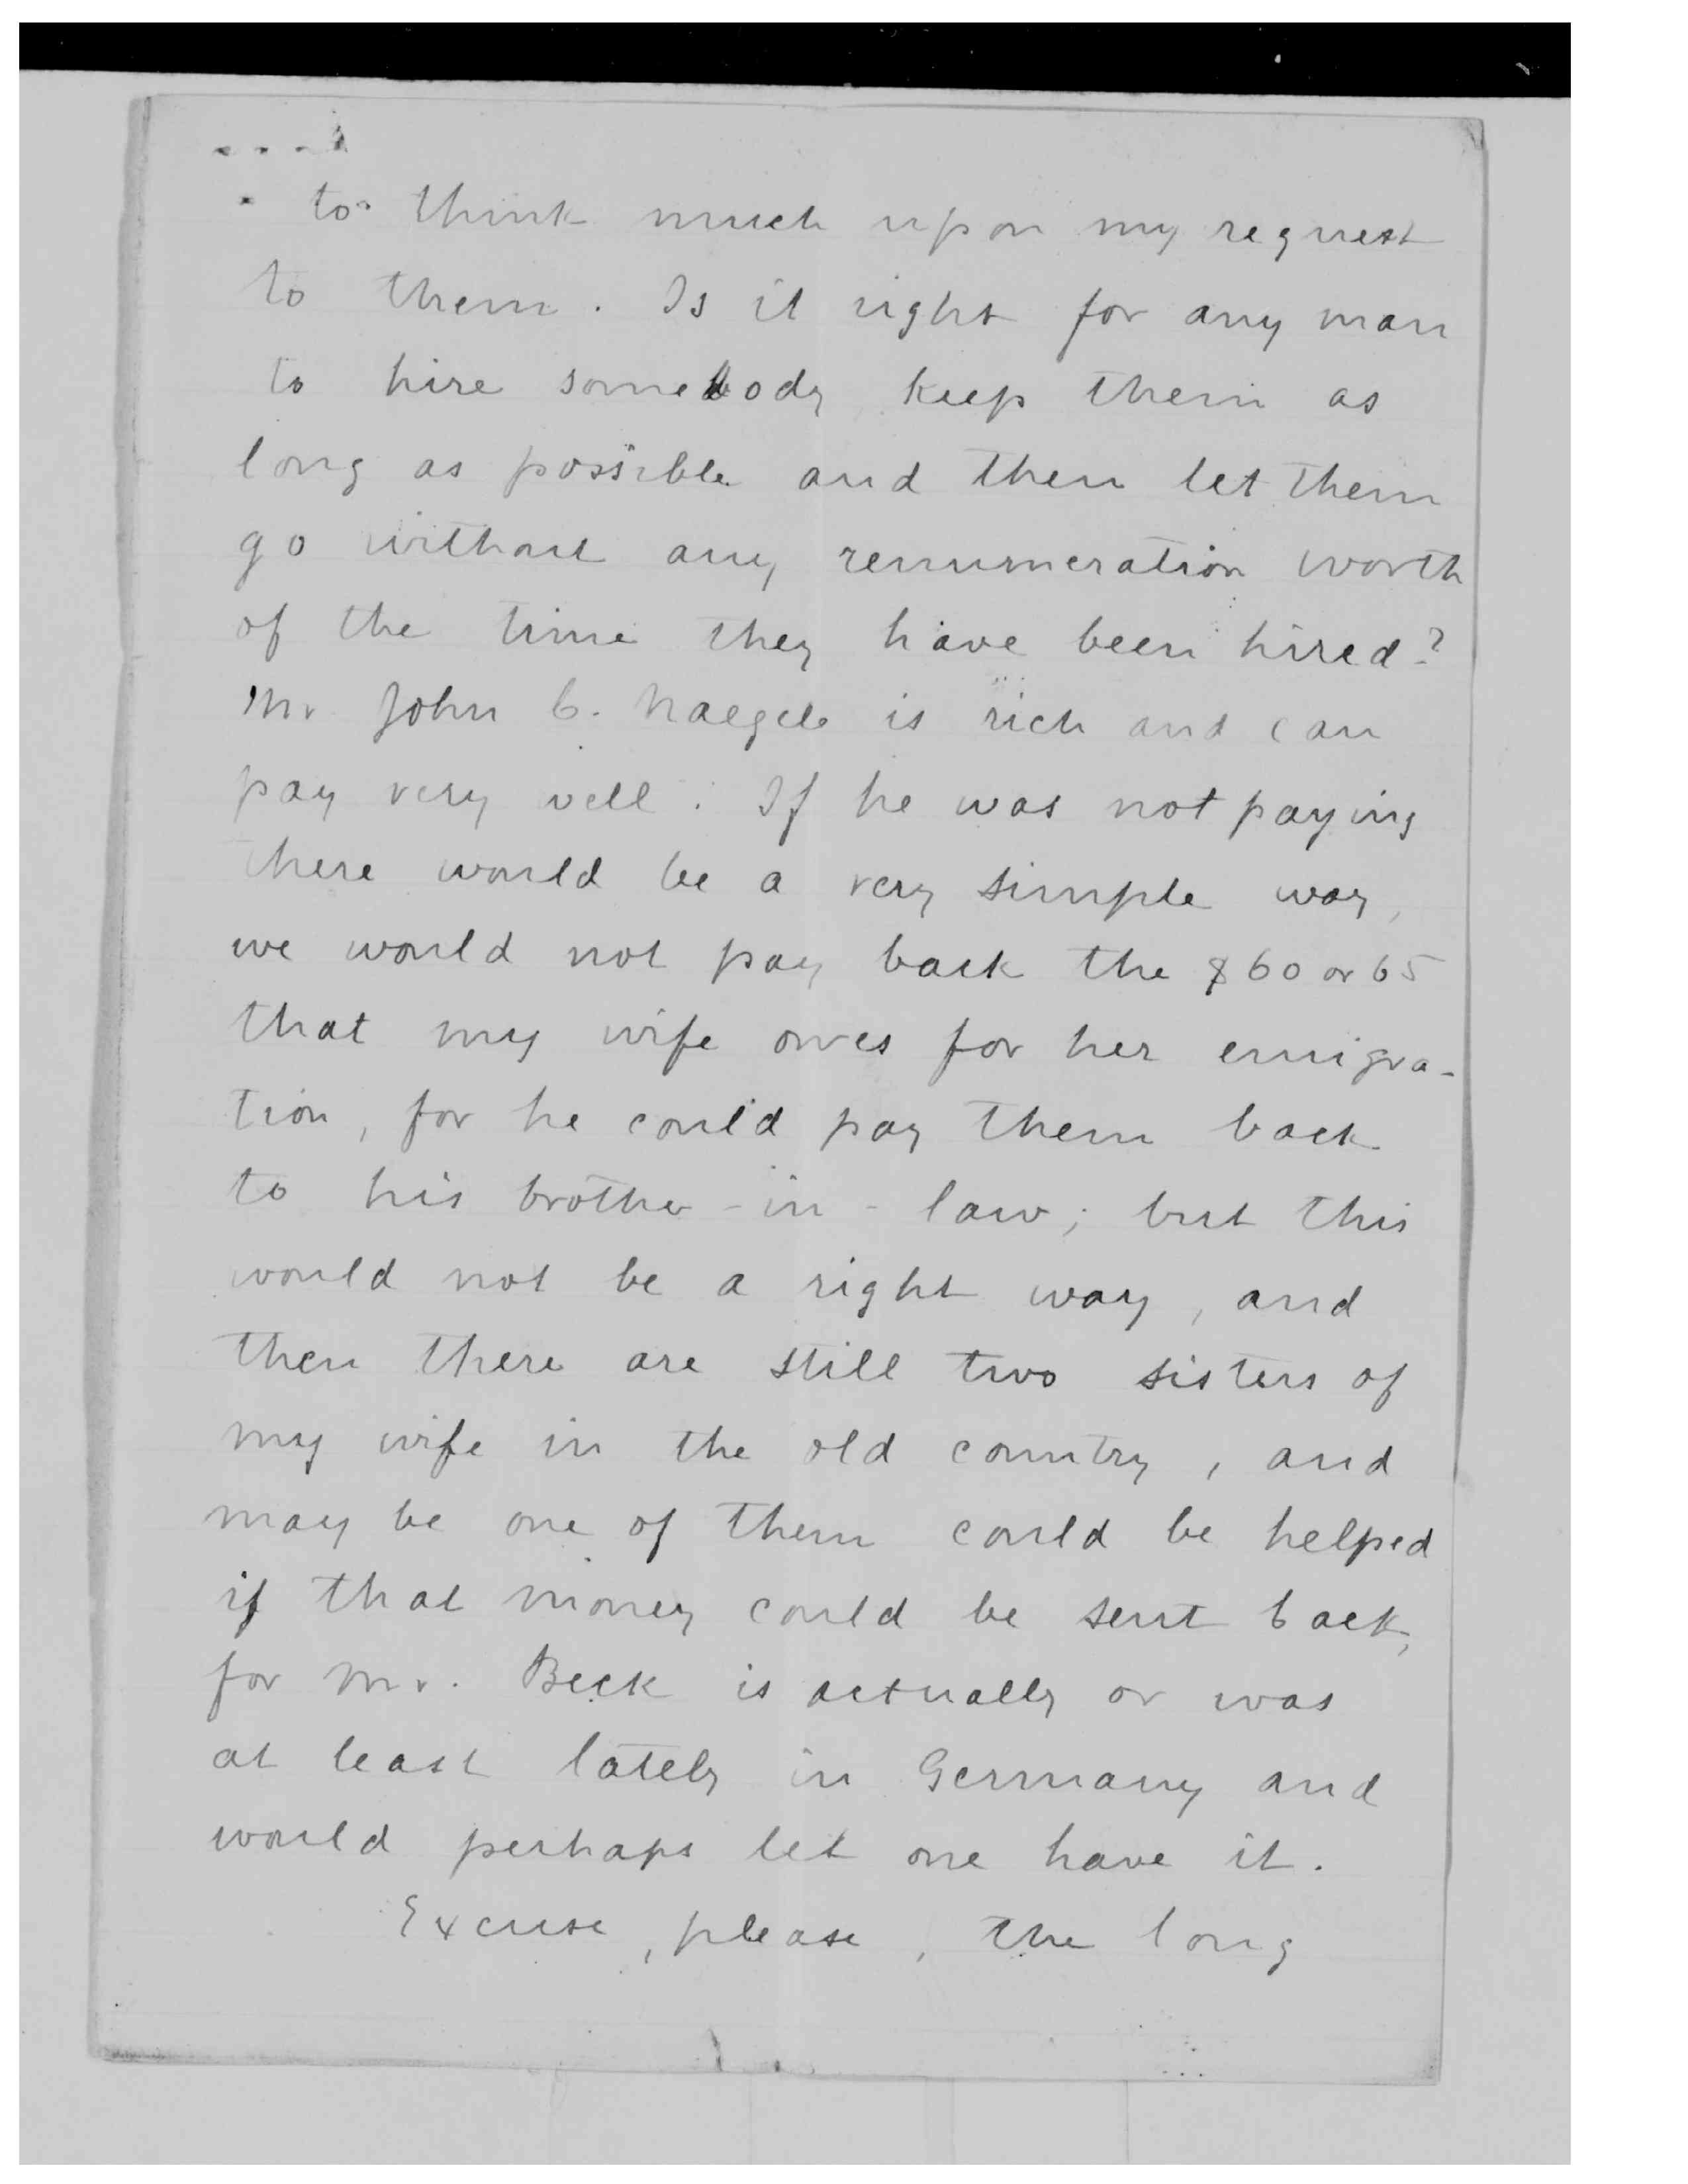 to think much upon my request
to them. Is it right for any man
to hire somebody keep them as
long as possible and then let them
go without any renumeration worth
of the time they have been hired?
Mr John C. Naegele is rich and can
pay very vell. If he was not paying
there would be a very simple way,
we would not pay back the $60 or 65
that my wife owes for her emigra-
tion, for he could pay them back
to his brother-in-law; but this
would not be a right way, and
then there are still two sisters of
my wife in the old country, and
may be one of them could be helped
if that money could be sent back,
for Mr. Beck is actually or was
at least lately in Germany and
would perhaps let one have it.
Excuse, please, the long